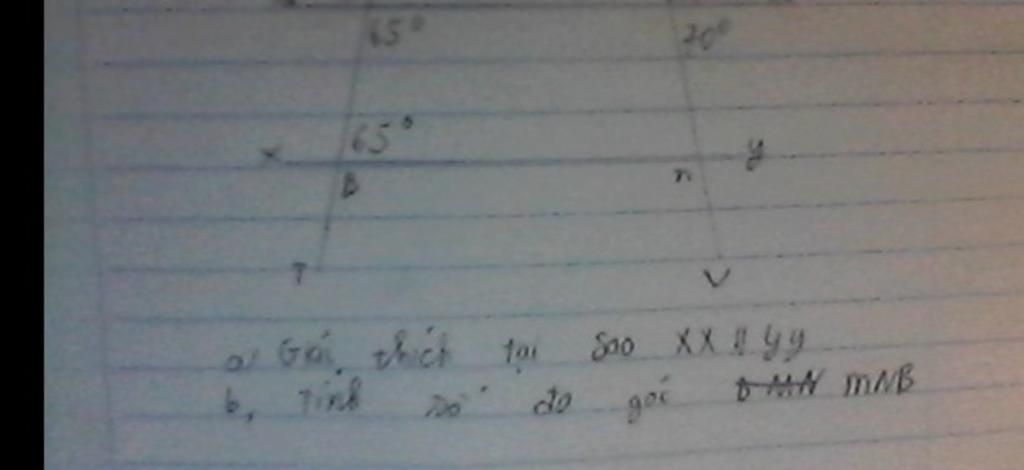 65° 70°
65°
x y
B n
T V
a, Giải thích tại sao xx // yy
b, Tính số đo góc MNB